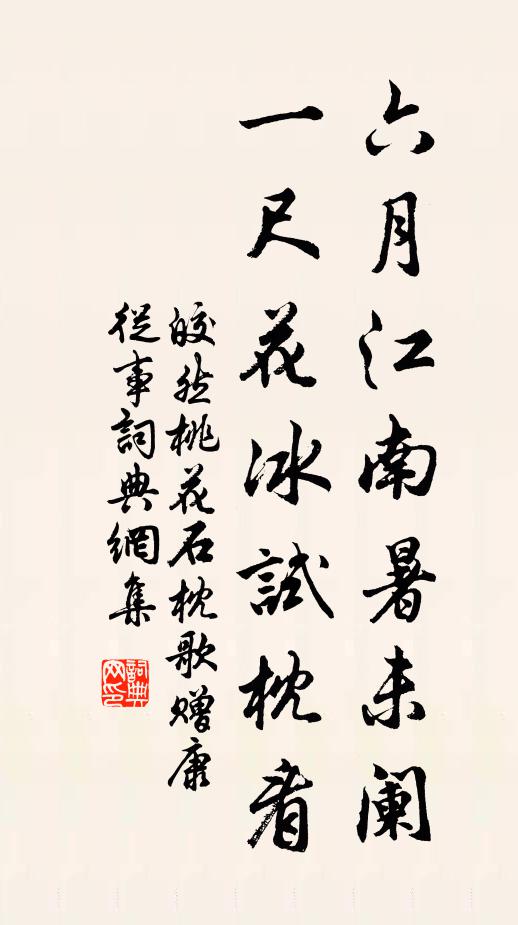 六月江南暑未阑
一尺花冰試枕看
皎然桃花石枕歌赠康
從事詞典網集
詞典网印